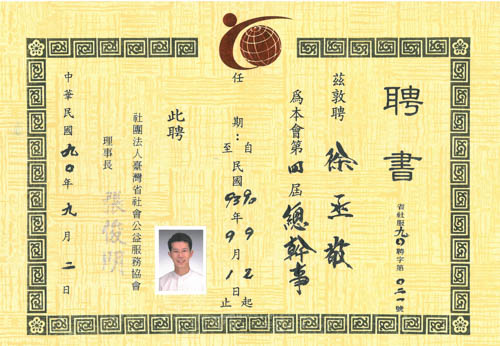 聘書
省社服九〇聘字第〇二一號
茲敦聘 徐丞敬
為本會第四屆總幹事
任期：自民國90年9月2日起
至93年9月1日止
此聘
社團法人臺灣省社會公益服務協會
理事長 張俊明
中華民國九〇年九月二日